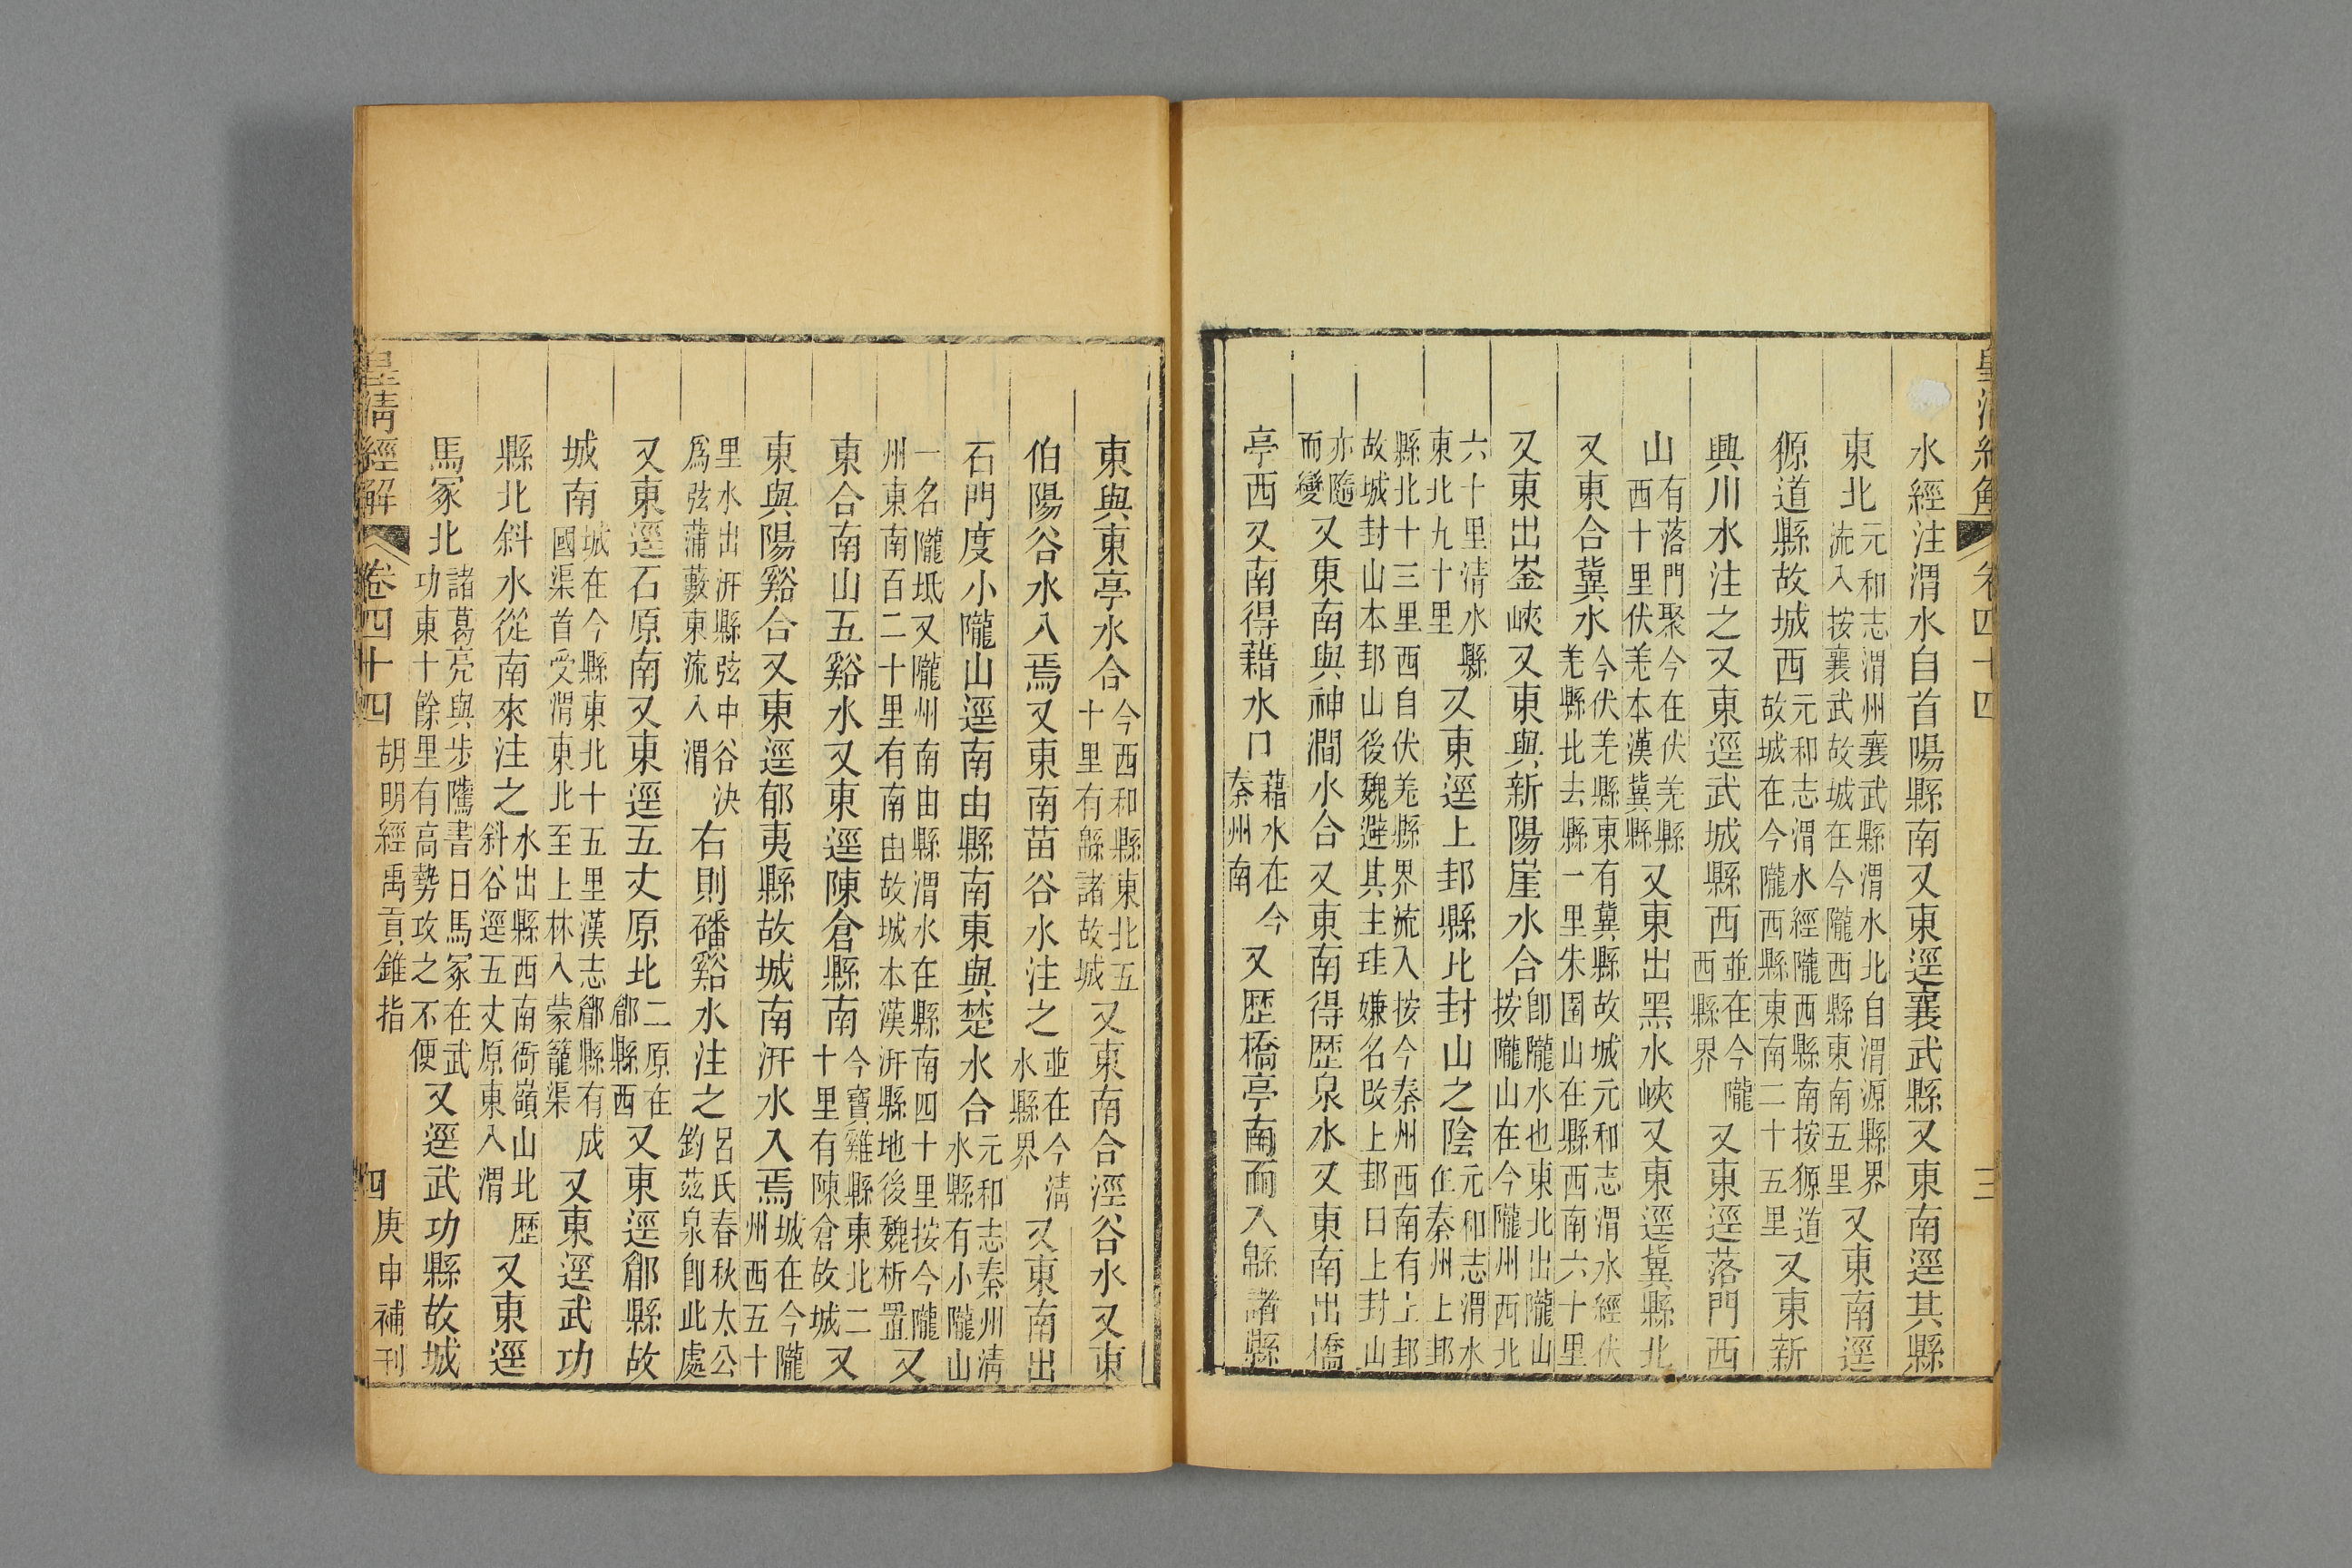 皇清經解 卷四十四 三
水經注渭水自首陽縣南又東逕襄武縣又東南逕其縣
東北元和志渭州襄武縣渭水北自渭源縣界流入按襄武故城在今隴西縣東南五里又東南逕
獂道縣故城西元和志渭水經隴西縣南按獂道故城在今隴西縣東南二十五里又東新
興川水注之又東逕武城縣西並在今隴西縣界又東逕落門西
山有落門聚今在伏羌縣西十里伏羌本漢冀縣又東出黑水峽又東逕冀縣北
又東合冀水今伏羌縣東有冀縣故城元和志渭水經伏羌縣北去縣一里朱圉山在縣西南六十里
又東出峑峽又東與新陽崖水合卽隴水也東北出隴山按隴山在今隴州西北
六十里清水縣東北九十里又東逕上邽縣北封山之陰元和志渭水在秦州上邽
縣北十三里西自伏羌縣界流入按今秦州西南有上邽故城封山本邽山後魏避其主珪嫌名改上邽曰上封山
亦隨而變又東南與神澗水合又東南得歷泉水又東南出橋
亭西又南得藉水口藉水在今秦州南又歷橋亭南而入緜諸縣
東與東亭水合今西和縣東北五十里有緜諸故城又東南合涇谷水又東
伯陽谷水入焉又東南苗谷水注之並在今清水縣界又東南出
石門度小隴山逕南由縣南東與楚水合元和志秦州清水縣有小隴山
一名隴坻又隴州南由縣渭水在縣南四十里按今隴州東南百二十里有南由故城本漢汧縣地後魏析置又
東合南山五谿水又東逕陳倉縣南今寶雞縣東北二十里有陳倉故城又
東與陽谿合又東逕郁夷縣故城南汧水入焉城在今隴州西五十
里水出汧縣弦中谷決爲弦蒲藪東流入渭右則磻谿水注之呂氏春秋太公釣茲泉卽此處
又東逕石原南又東逕五丈原北二原在郿縣西又東逕郿縣故
城南城在今縣東北十五里漢志郿縣有成國渠首受渭東北至上林入蒙籠渠又東逕武功
縣北斜水從南來注之水出縣西南衙嶺山北歷斜谷逕五丈原東入渭又東逕
馬冢北諸葛亮與步騭書曰馬冢在武功東十餘里有高勢攻之不便又逕武功縣故城
皇清經解 卷四十四 胡明經禹貢錐指 四 庚申補刊